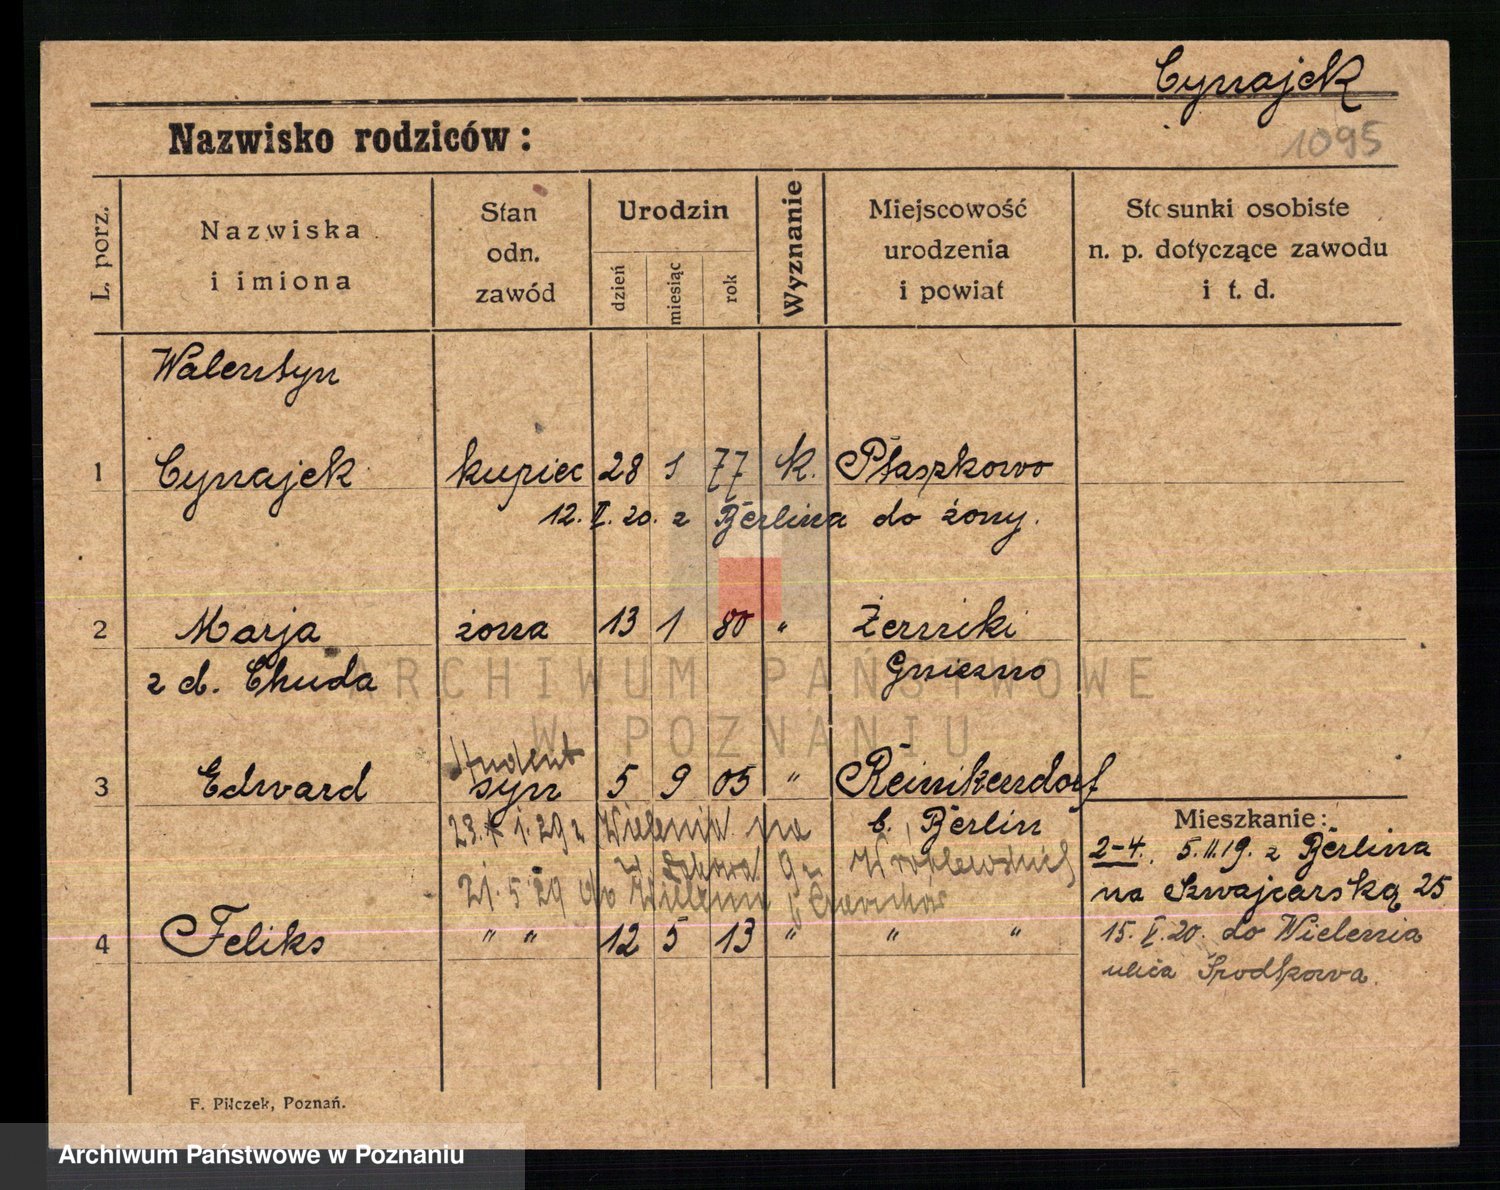 Cynajek
Nazwisko rodziców:
1095
L. porz.
Nazwiska
i imiona
Stan
odn.
zawód
Urodzin
dzień
miesiąc
rok
Wyznanie
Miejscowość
urodzenia
i powiat
Stosunki osobiste
n. p. dotyczące zawodu
i t. d.
Walentyn
1 Cynajek kupiec 28 1 77 k. Ptaszkowo
12. II. 20. z Berlina do żony.
2 Marja żona 13 1 80 " Żerniki
z d. Chuda Gniezno
student
3 Edward syn 5 9 05 " Reinikendorf
b. Berlin
23. 1. 29 z Wielenia na
21. 5 29 do Wielenia
4 Feliks " " 12 5 13 " " "
Mieszkanie:
2-4. 5. II. 19. z Berlina
na Szwajcarską 25
15. V. 20. do Wielenia
ulica Środkowa.
F. Pilczek, Poznań.
ARCHIWUM PAŃSTWOWE
W POZNANIU
Archiwum Państwowe w Poznaniu